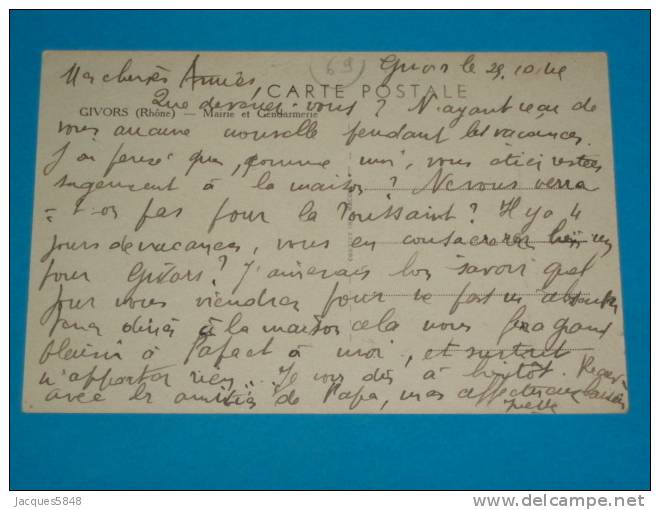 69
Givors le 29.10
Mes chères Amies,
CARTE POSTALE
Que devenez-vous ? N'ayant reçu de
GIVORS (Rhône) — Mairie et Gendarmerie
vous aucune nouvelle pendant les vacances.
J'ai pensé que, comme moi, vous étiez restées
sagement à la maison ? Ne vous verra
-t-on pas pour la Toussaint ? Il y a 4
jours de vacances, vous en consacrerez bien un
pour Givors ? J'aimerais bien savoir quel
jour vous viendrez pour ne pas m'absenter
Venez dîner à la maison cela vous fera grand
plaisir à Papa et à moi, et surtout
n'apportez rien... Je vous dis à bientôt. Recevez
avec les amitiés de Papa, mes affectueux baisers
Jacques5848
www.delcampe.net